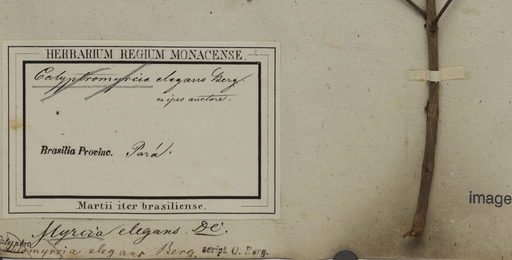 HERBARIUM REGIUM MONACENSE.
Calyptromyrcia elegans Berg.
ex ipso auctore.
Brasilia Provinc. Pará.
Martii iter brasiliense.
Myrcia elegans DC.
Calyptromyrcia elegans Berg. script. O. Berg.
image